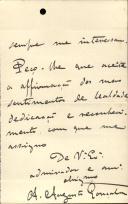 sempre me interessam
Peço-lhe que aceite
a affirmação dos meus
sentimentos de lealdade,
dedicação e reconheci-
mento com que me
assigno
De V. Ex.ª
admirador e am.º
obrigmo
A. Augusto Gonçalves